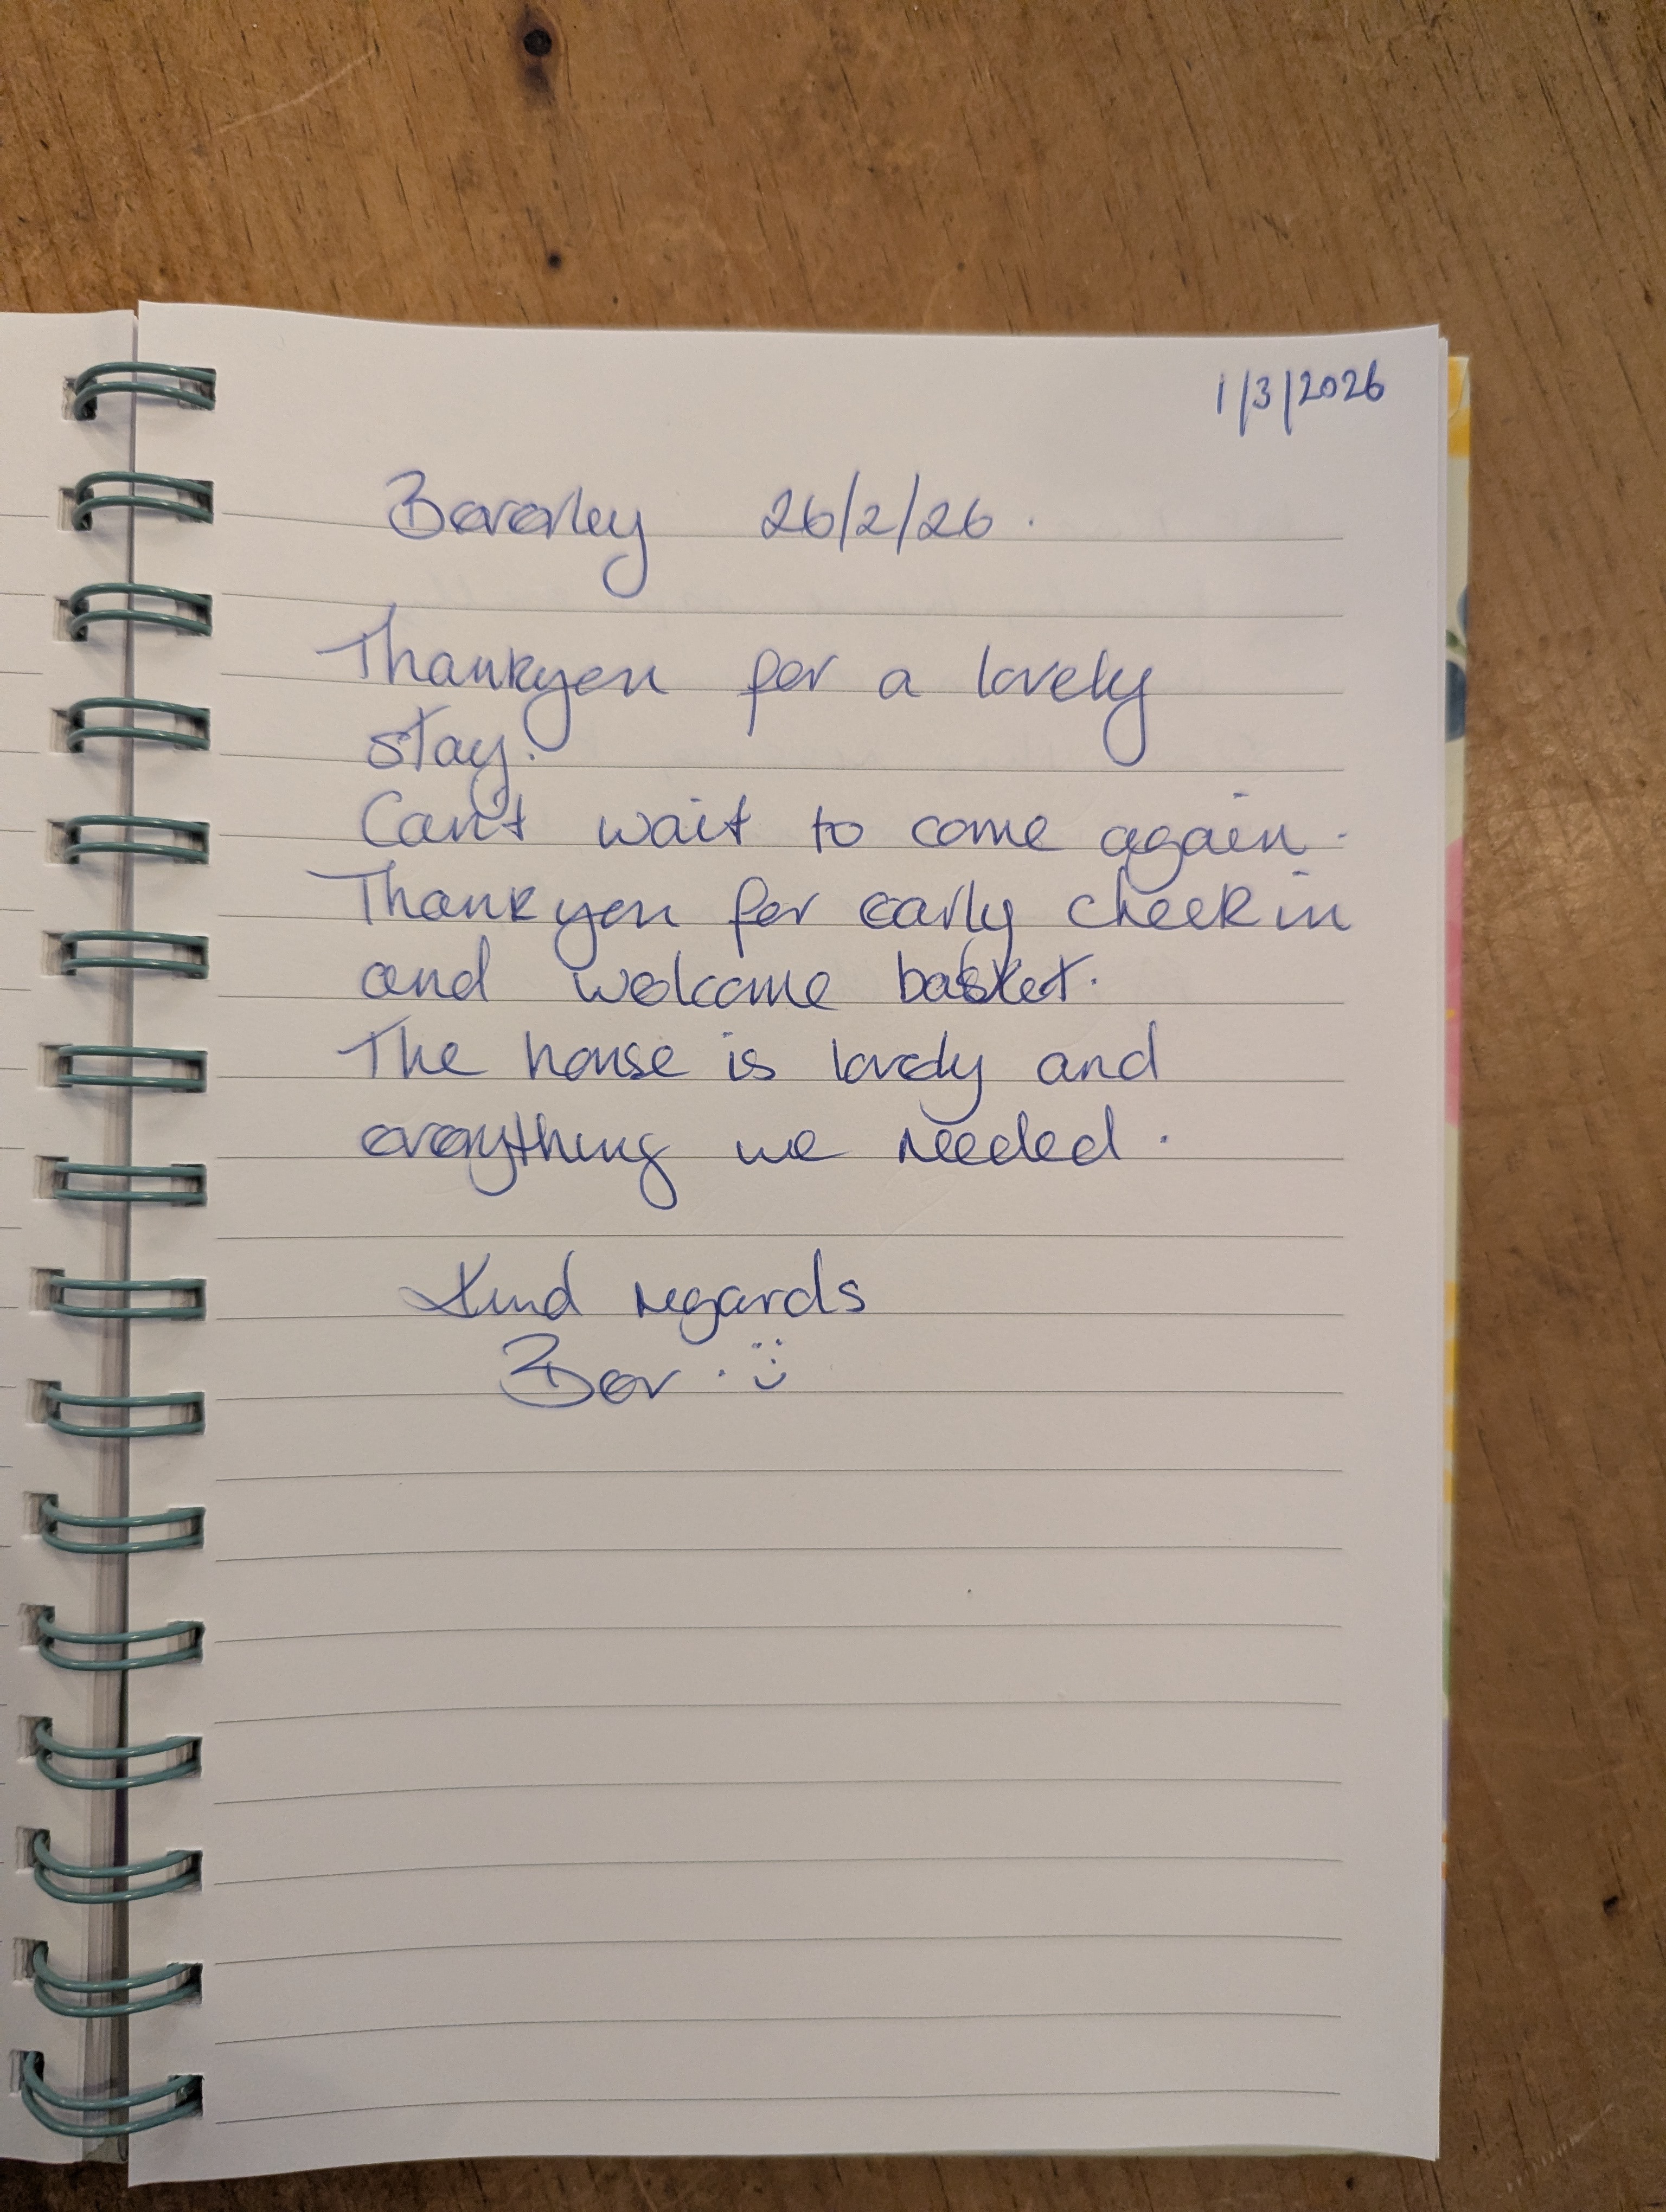 1/3/2026
Beverley 26/2/26.
Thankyou for a lovely
stay.
Can't wait to come again.
Thank you for early check in
and welcome basket.
The house is lovely and
everything we needed.
Kind regards
Bev. :)